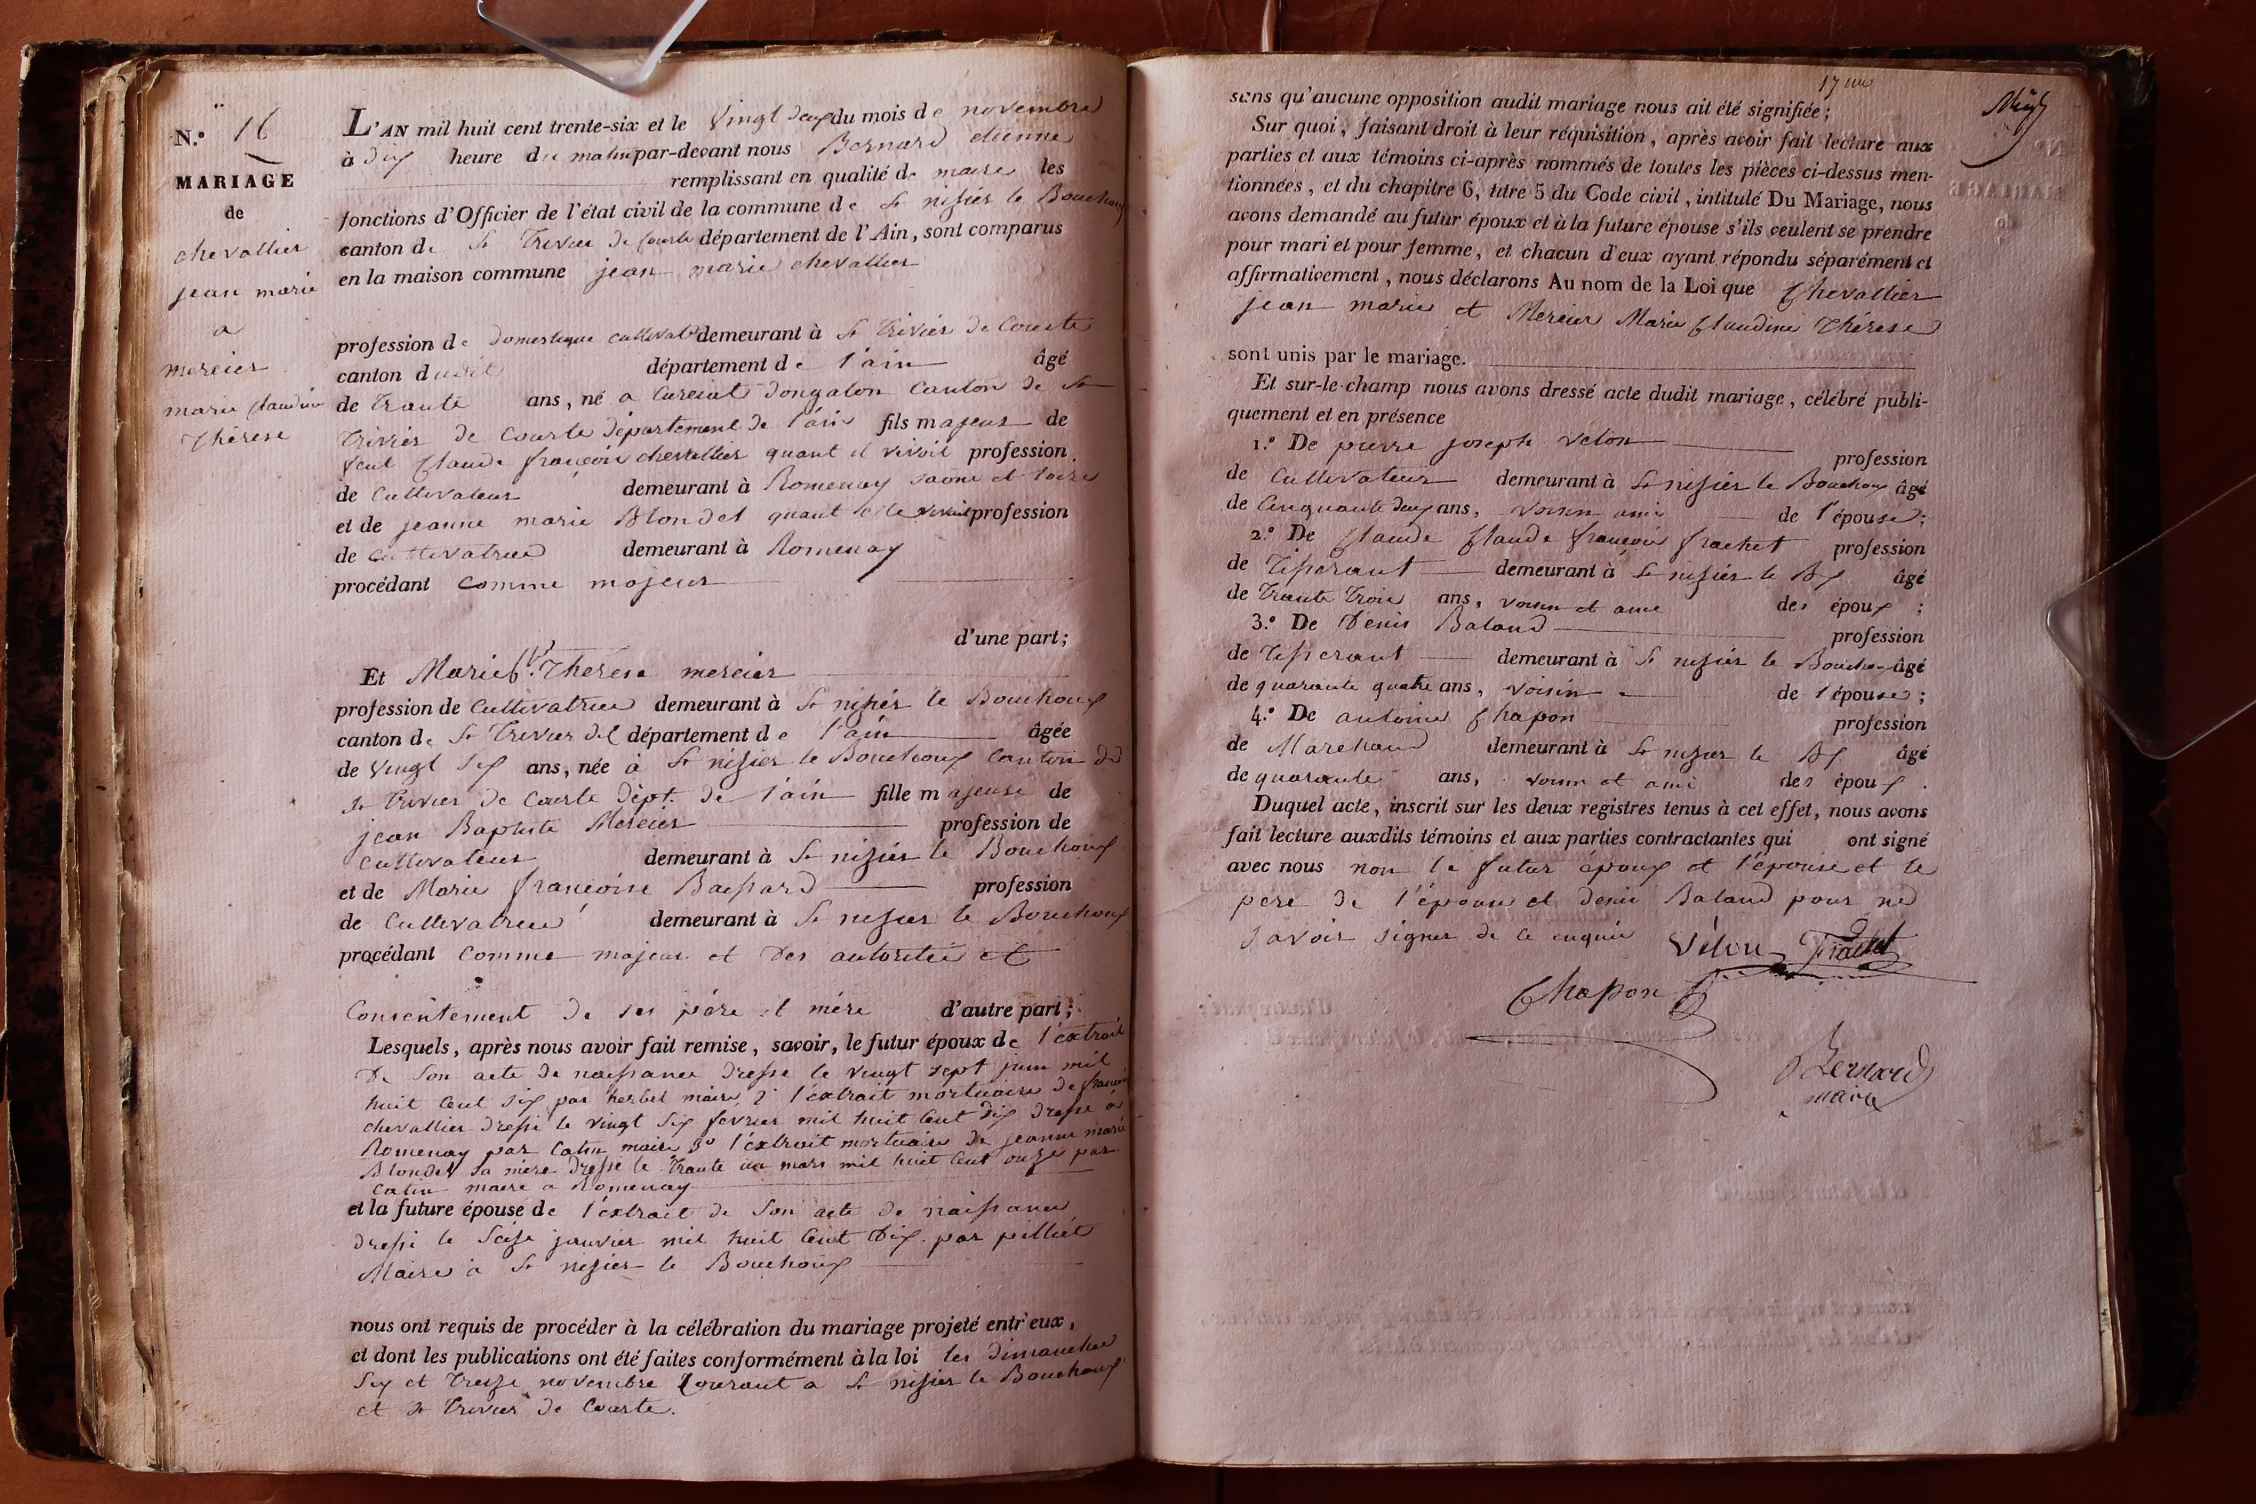 N.° 16
MARIAGE
de
chevallier
jean marie
a
mercier
marie Claudine
Thérese
L'AN mil huit cent trente-six et le vingt deux du mois de novembre
à dix heure du matin par-devant nous Bernard etienne
remplissant en qualité de maire les
fonctions d'Officier de l'état civil de la commune de St nisier le Bouchoux
canton de St Trivier de Courte département de l'Ain, sont comparus
en la maison commune jean marie chevallier
profession de domestique cultivat demeurant à St Trivier de Courte
canton dudit département de l'ain âgé
de trante ans, né a Curciat dongalon Canton de St
Trivier de Courte département de l'ain fils majeur de
feut Claude françois chevallier quant il vivoit profession
de Cultivateur demeurant à Romenay saone et loire
et de jeanne marie Blondel quant elle vivoit profession
de Cultivatrice demeurant à Romenay
procédant comme majeur
d'une part;
Et Marie Cl. Thérese mercier
profession de Cultivatrice demeurant à St nisier le Bouchoux
canton de St Trivier de C département de l'ain âgée
de vingt six ans, née à St nisier le Bouchoux Canton de
St Trivier de Courte dépt. de l'ain fille majeure de
jean Baptiste Mercier profession de
Cultivateur demeurant à St nisier le Bouchoux
et de Marie françoise Bassard profession
de Cultivatrice demeurant à St nisier le Bouchoux
procédant Comme majeur et des autoritée et
Consentement de ses père et mère d'autre part;
Lesquels, après nous avoir fait remise, savoir, le futur époux de l'extrait
De son acte de naissance dresse le vingt sept juin mil
huit Cent six par herbet maire 2° l'extrait mortuaire de françois
chevallier dressé le vingt six fevrier mil huit Cent dix dressé à
Romenay par Catin maire 3° l'extrait mortuaire de jeanne marie
Blondel sa mère dressé le trante un mars mil huit Cent onze par
Catin maire a Romenay
et la future épouse de l'extrait de son acte de naissance
dressé le seise janvier mil huit Cent Dix par pilliet
Maire à St nisier le Bouchoux
nous ont requis de procéder à la célébration du mariage projeté entr'eux,
et dont les publications ont été faites conformément à la loi les dimanches
six et treize novembre Courant a St nisier le Bouchoux
et St Trivier de Courte.
17
sans qu'aucune opposition audit mariage nous ait été signifiée;
Sur quoi, faisant droit à leur réquisition, après avoir fait lecture aux
parties et aux témoins ci-après nommés de toutes les pièces ci-dessus men-
tionnées, et du chapitre 6, titre 5 du Code civil, intitulé Du Mariage, nous
avons demandé au futur époux et à la future épouse s'ils veulent se prendre
pour mari et pour femme, et chacun d'eux ayant répondu séparément et
affirmativement, nous déclarons Au nom de la Loi que Chevallier
jean marie et Mercier Marie Claudine Thérese
sont unis par le mariage.
Et sur-le-champ nous avons dressé acte dudit mariage, célébré publi-
quement et en présence
1.° De pierre joseph velon profession
de Cultivateur demeurant à St nisier le Bouchoux âgé
de Cinquante deux ans, voisin ami de l'épouse;
2.° De Claude Claude françois frachet profession
de Tisserant demeurant à St nisier le Bx âgé
de trante trois ans, voisin et ami des époux;
3.° De Denis Baland profession
de Tisserant demeurant à St nisier le Bouchou âgé
de quarante quatre ans, voisin de l'épouse;
4.° De antoine Chapon profession
de Marchand demeurant à St nisier le Bx âgé
de quarante ans, voisin et ami des époux.
Duquel acte, inscrit sur les deux registres tenus à cet effet, nous avons
fait lecture auxdits témoins et aux parties contractantes qui ont signé
avec nous non le futur époux et l'épouse et le
père de l'épouse et denis Baland pour ne
savoir signer de ce enquis Vélon Frachet
Chapon
Bernard
maire